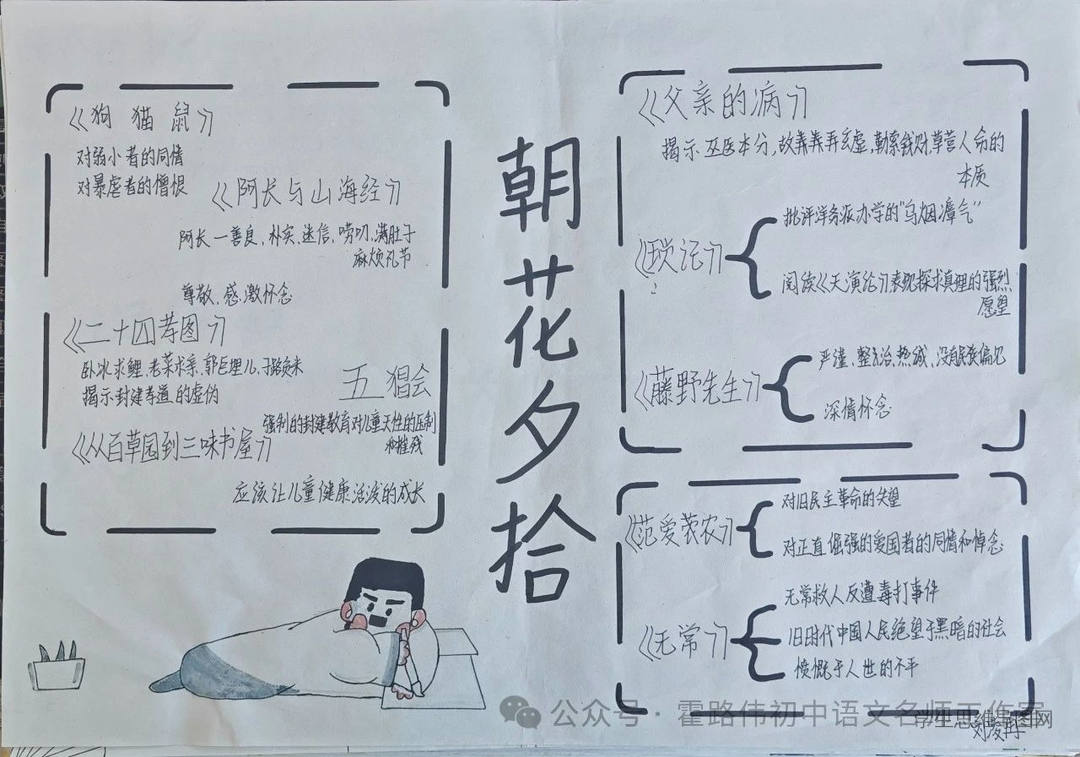 《狗 猫 鼠》
对弱小者的同情
对暴虐者的憎恨
《阿长与山海经》
阿长—善良、朴实、迷信、唠叨、满肚子
麻烦礼节
尊敬、感激怀念
《二十四孝图》
卧冰求鲤、老莱求亲、郭巨埋儿、子路负米
揭示封建孝道的虚伪
五猖会
强制的封建教育对儿童天性的压制
和摧残
《从百草园到三味书屋》
应该让儿童健康活泼的成长
朝花夕拾
《父亲的病》
揭示巫医本分,故弄弄弄玄虚,勒索钱财,草菅人命的
本质
《琐记》
批评洋务派办学的"乌烟瘴气"
阅读《天演论》表现探求真理的强烈
愿望
《藤野先生》
严谨、整、热诚、没有民族偏见
深情怀念
《范爱农》
对旧民主革命的失望
对正直倔强的爱国者的同情和悼念
《无常》
无常救人反遭毒打事件
旧时代中国人民绝望于黑暗的社会
愤慨于人世的不平
公众号·霍路伟初中语文名师工作室